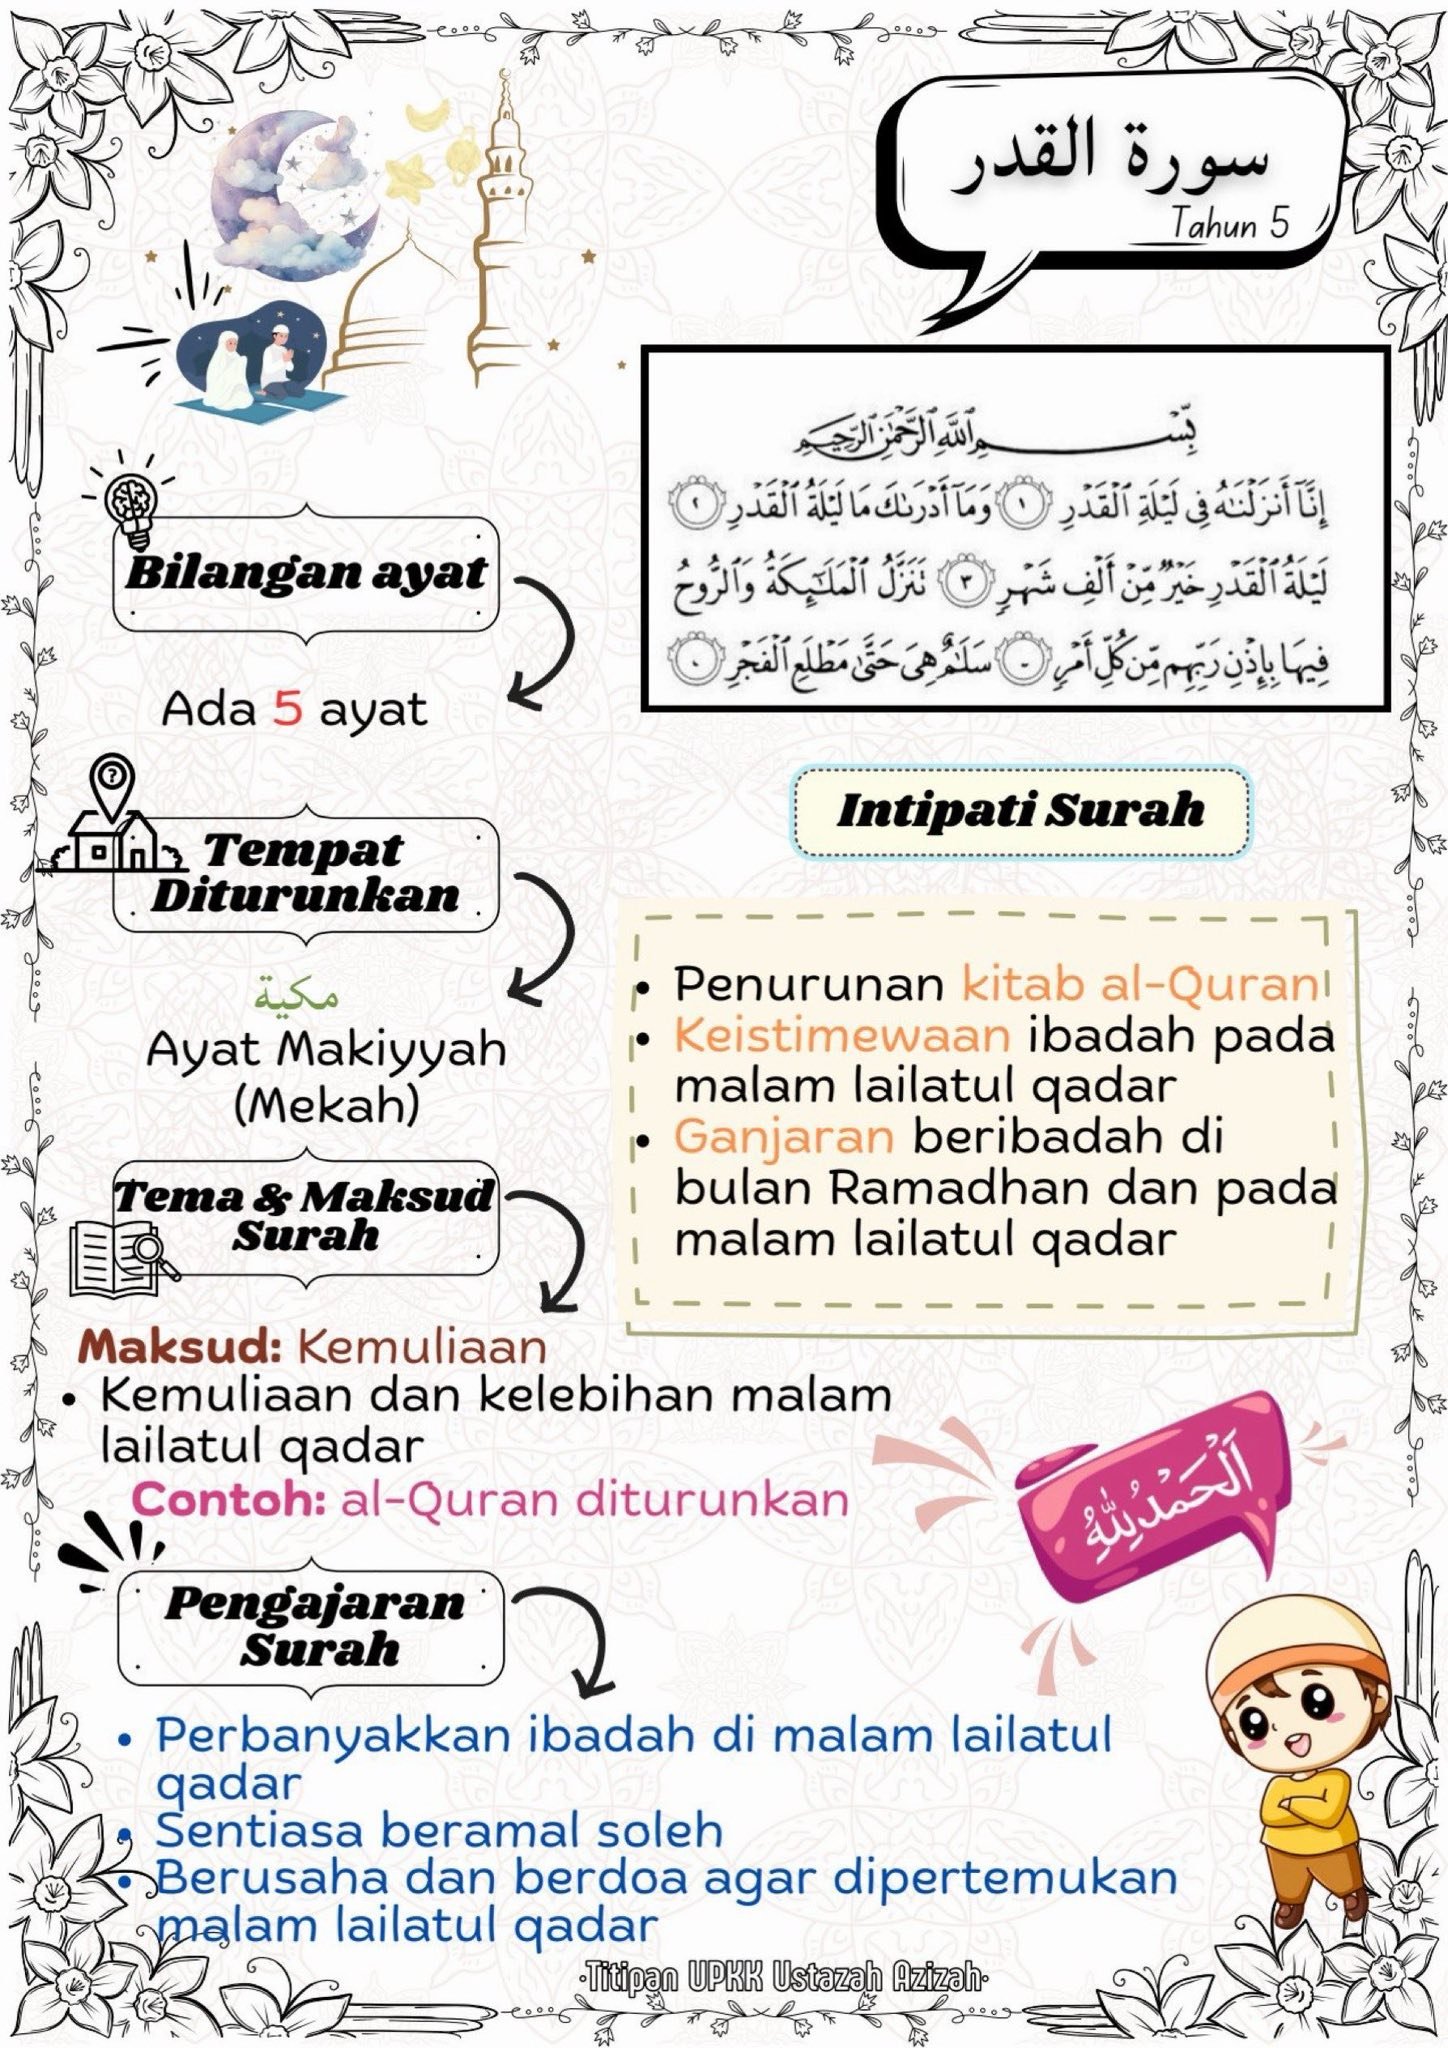 سورة القدر
Tahun 5
بِّسْمِ ٱللَّهِ ٱلرَّحْمَٰنِ ٱلرَّحِيمِ
إِنَّآ أَنزَلْنَٰهُ فِى لَيْلَةِ ٱلْقَدْرِ ١ وَمَآ أَدْرَىٰكَ مَا لَيْلَةُ ٱلْقَدْرِ ٢
لَيْلَةُ ٱلْقَدْرِ خَيْرٌ مِّنْ أَلْفِ شَهْرٍ ٣ تَنَزَّلُ ٱلْمَلَٰٓئِكَةُ وَٱلرُّوحُ
فِيهَا بِإِذْنِ رَبِّهِم مِّن كُلِّ أَمْرٍ سَلَٰمٌ هِىَ حَتَّىٰ مَطْلَعِ ٱلْفَجْرِ
Bilangan ayat
Ada 5 ayat
Tempat
Diturunkan
مكية
Ayat Makiyyah
(Mekah)
Tema & Maksud
Surah
Maksud: Kemuliaan
• Kemuliaan dan kelebihan malam
lailatul qadar
Contoh: al-Quran diturunkan
Intipati Surah
• Penurunan kitab al-Quran
• Keistimewaan ibadah pada
malam lailatul qadar
• Ganjaran beribadah di
bulan Ramadhan dan pada
malam lailatul qadar
اَلْحَمْدُ لِلّٰهِ
Pengajaran
Surah
• Perbanyakkan ibadah di malam lailatul
qadar
• Sentiasa beramal soleh
• Berusaha dan berdoa agar dipertemukan
malam lailatul qadar
•Titipan UPKK Ustazah Azizah•